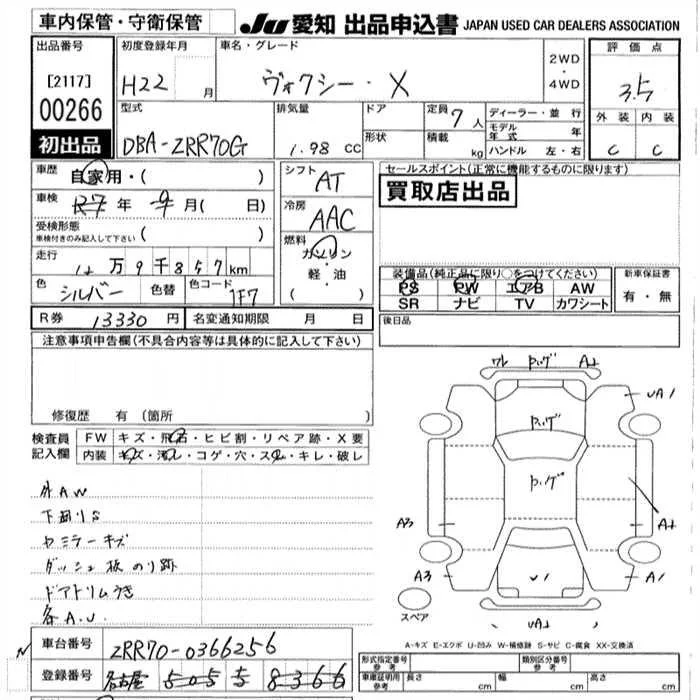 車内保管・守衛保管
JU 愛知 出品申込書 JAPAN USED CAR DEALERS ASSOCIATION
出品番号
[2117]
00266
初出品
初度登録年月
H22 月
車名・グレード
ヴォクシー・X
2WD
・
4WD
評価点
3.5
外装 内装
C C
型式
DBA-ZRR70G
排気量
1.98 CC
ドア
形状
定員 7 人
積載 kg
ディーラー・並行
モデル年式 年
ハンドル 左・右
車歴 自家用・( )
車検 R7 年 9 月( 日)
受検形態
車検付きのみ記入して下さい ( )
走行 12 万 9 千 8 5 7 km
色 シルバー 色替 色コード 1F7
シフト
AT
冷房
AAC
燃料
ガソリン
軽・油
( )
セールスポイント(正常に機能するものに限ります)
買取店出品
装備品(純正品に限り○をつけてください)
PS PW エアB AW
SR ナビ TV カワシート
新車保証書
有・無
R券 13330 円 名変通知期限 月 日
後日品
注意事項申告欄(不具合内容等は具体的に記入して下さい)
修復歴 有 (箇所 )
検査員記入欄
FW キズ・飛石・ヒビ割・リペア跡・X要
内装 キズ・汚れ・コゲ・穴・スレ・キレ・破レ
外AW
下廻りS
セミラーキズ
ダッシュ板のり跡
ドアトリムうき
各A.U.
ワレ P.ッグ A2
UA1
P.ッグ
P.ッグ
A3 A2
A3 U1 A1
スペア
UA2
A-キズ E-エクボ U-凹み W-補修跡 S-サビ C-腐食 XX-交換済
車台番号 ZRR70-0366256
登録番号 名古屋 505 す 8366
形式指定番号 参考
類別区分番号 参考
車庫証明用 参考 長さ cm 幅 cm 高さ cm